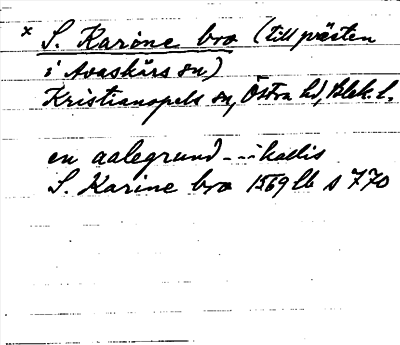 × S. Karine bro (till prästen
i Avaskärs sn)
Kristianopels sn, Östra hd, Blek. l.
en aalegrund --- i kallis
S. Karine bro 1569 lb s 770